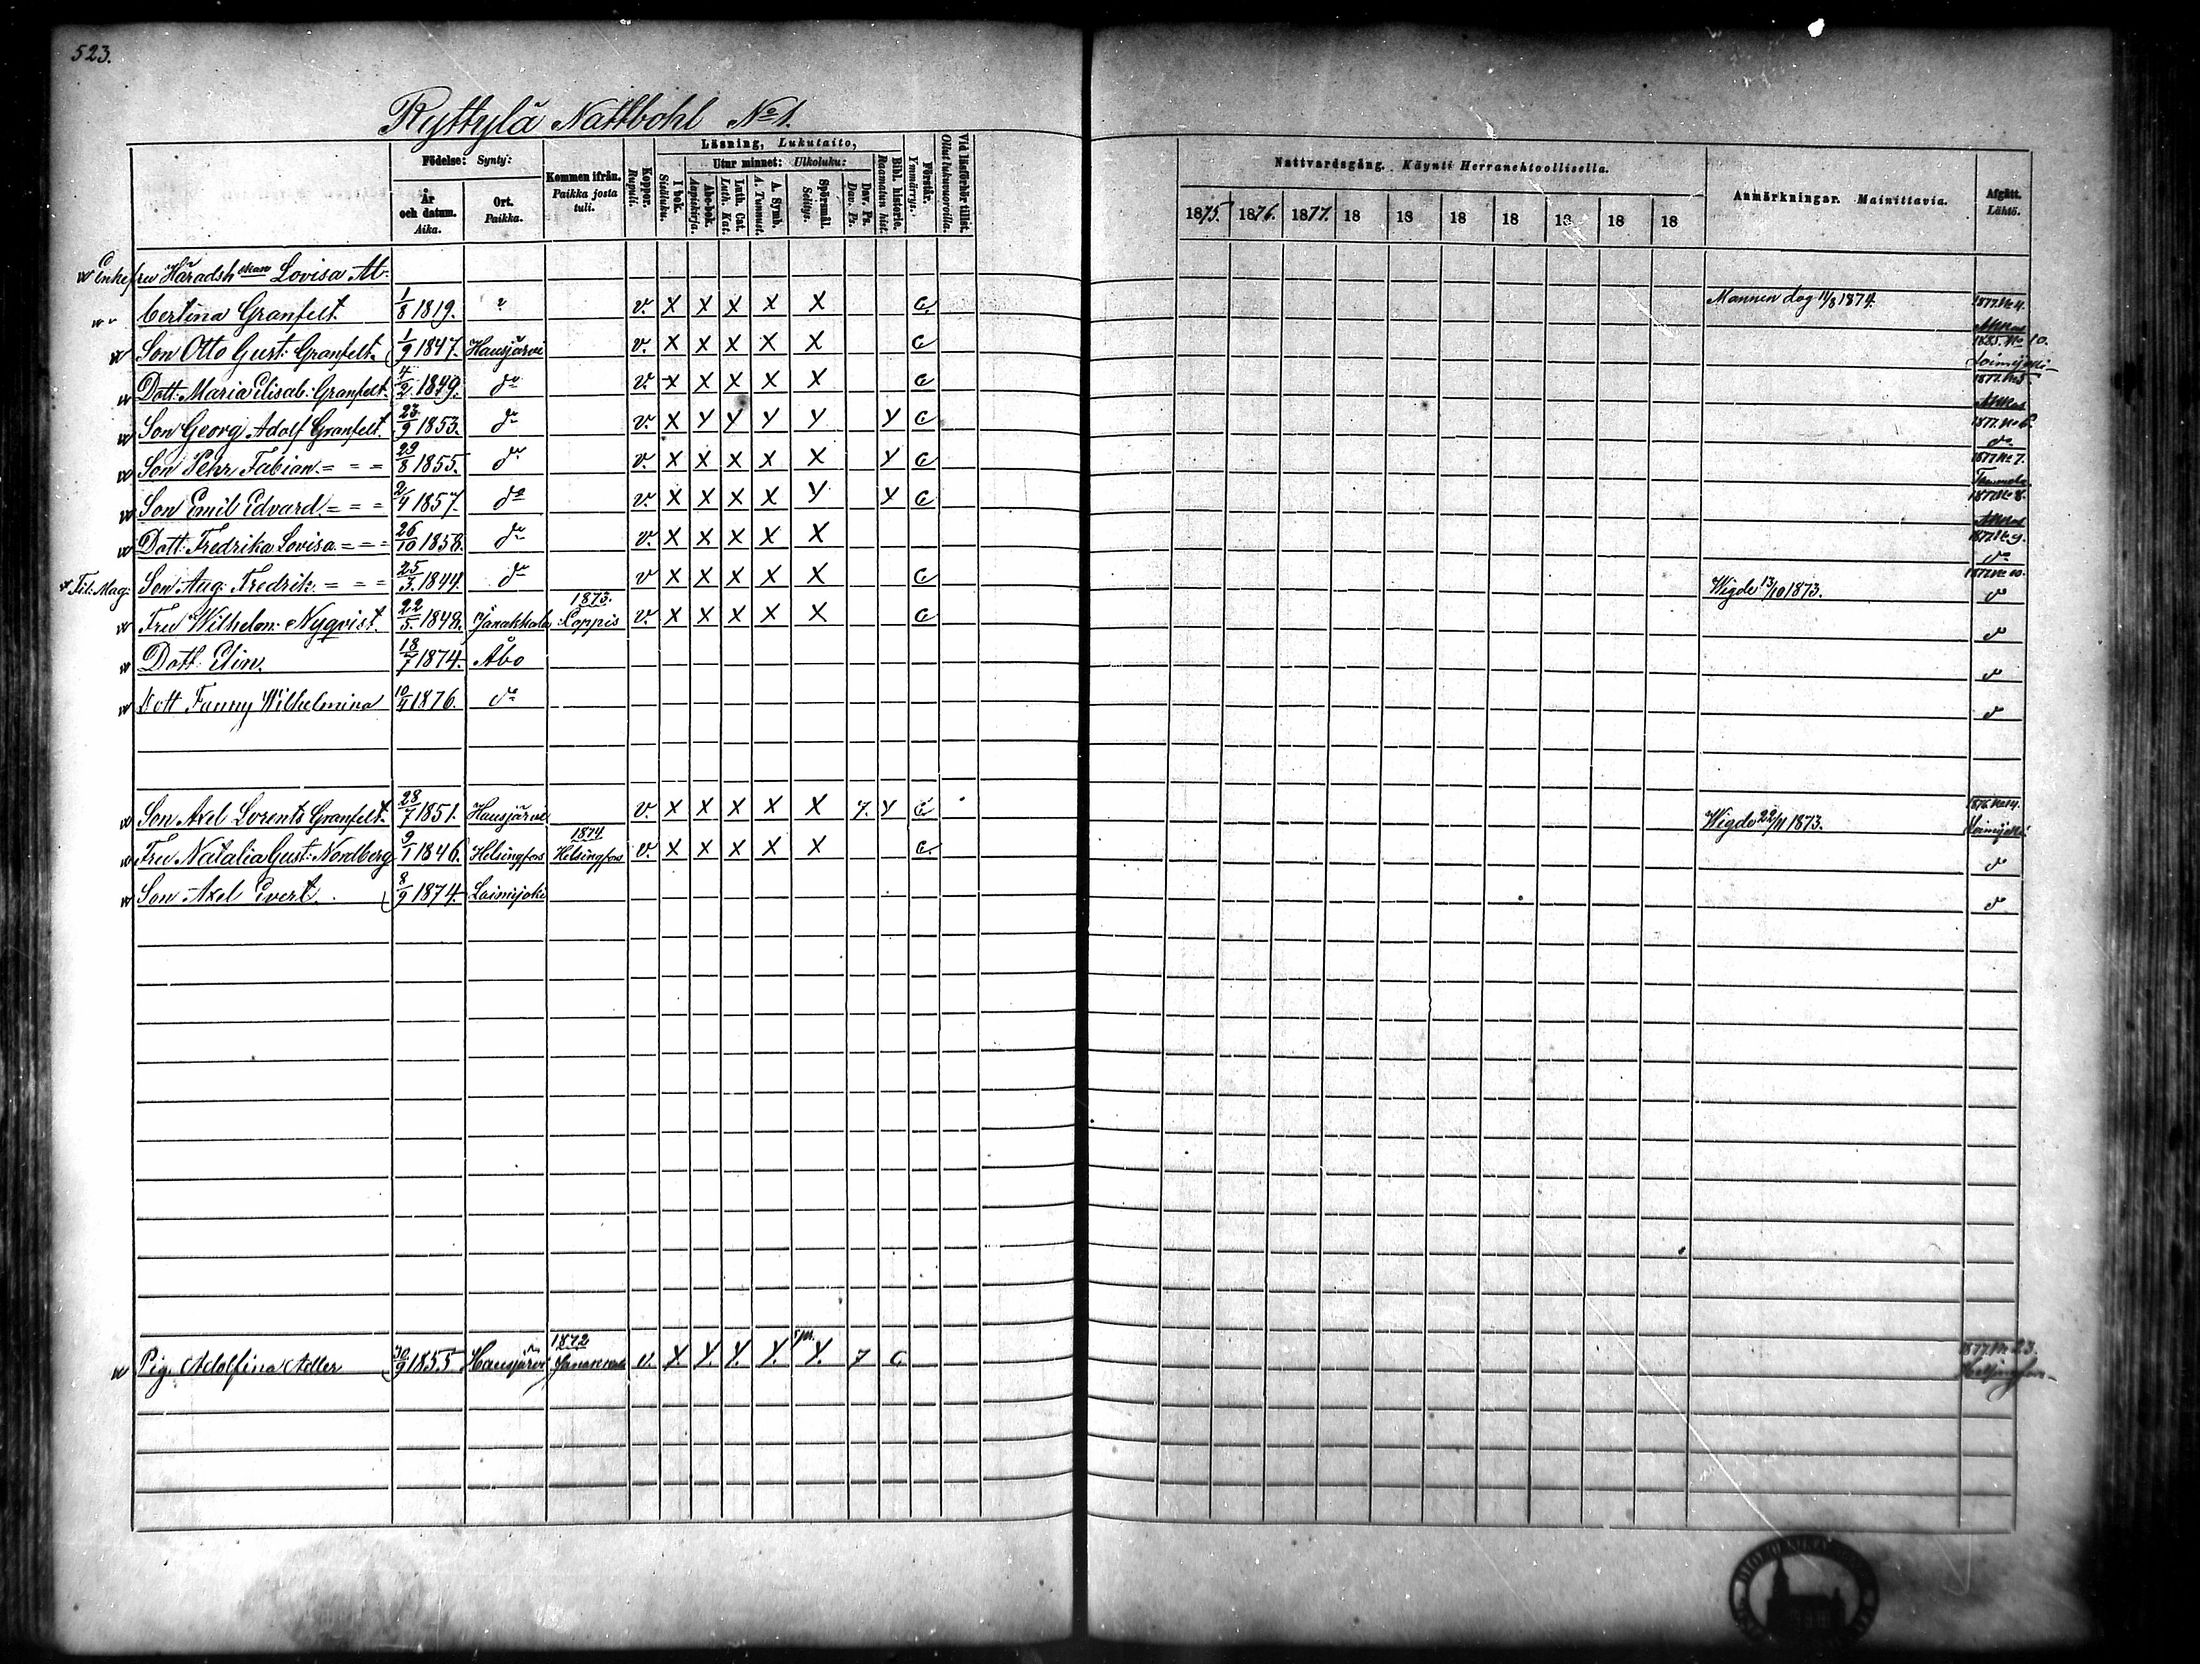 523.
Ryttylä Nattbohl No 1.
Födelse: Synty:
År och datum. Aika.
Ort. Paikka.
Kommen ifrån. Paikka josta tuli.
Koppor. Rupuli.
Läsning, Lukutaito,
I bok. Sisäluku.
Utur minnet: Ulkoluku:
Abc-bok. Aapiskirja.
Luth. Cat. Luth. Kat.
A. Symb. A. Tunnust.
Spörsmål. Selitys.
Dav. Ps. Dav. Ps.
Bibl. historie. Raamatun hist.
Förstår. Ymmärrys.
Vid läsförhör tillst. Ollut lukuvuoroilla.
Nattvardsgång. Käynti Herranehtoollisella.
1875 1876. 1877. 18 18 18 18 18 18 18
Anmärkningar. Mainittavia.
Afgått. Lähtö.
Enkefru Häradsh skan Lovisa Al-
bertina Granfelt 1/8 1819. v. X X X X X C. Mannen dog 11/8 1874. 1877. No 4.
Son Otto Gust: Granfelt. 1/9 1847. Hausjärvi v. X X X X X C 1885. No 10.
Dott. Maria Elisab: Granfelt. 4/2 1849. do v. X X X X X C 1877. No 5
Son Georg Adolf Granfelt. 23/9 1853. do v. X Y Y Y Y Y C 1877. No 6.
Son Pehr Fabian = = = 29/8 1855. do v. X X X X X Y C do 1877 No 7.
Son Emil Edvard = = = 2/4 1857. do v. X X X X Y Y C 1877 No 8.
Dott: Fredrika Lovisa = = = 26/10 1858. do v. X X X X X 1877. No 9.
Fil: Mag: Son Aug. Fredrik = = = 25/3 1844. do v X X X X X C Wigde 13/10 1873. do 1877 No 10.
Fru Wilhelm: Nyqvist. 22/5 1848. Janakkala 1873. Loppis v. X X X X X C do
Dott. Elin. 18/7 1874. Åbo do
Dott Fanny Wilhelmina 10/4 1876. do do
Son Axel Lorents Granfelt. 28/7 1851. Hausjärvi v. X X X X X 7. Y C Wigde 22/11 1873. 1876 No 14. Loimijoki
Fru Natalia Gust: Nordberg 9/1 1846. Helsingfors 1874 Helsingfors v. X X X X X C. do
Son Axel Evert. 8/9 1874. Loimijoki do
Pig. Adolfina Adler 30/9 1855 Hausjärvi 1872 Janakkala v. Y. Y. Y. Y. Y. 7 C 1877. No 23. Helsingfors